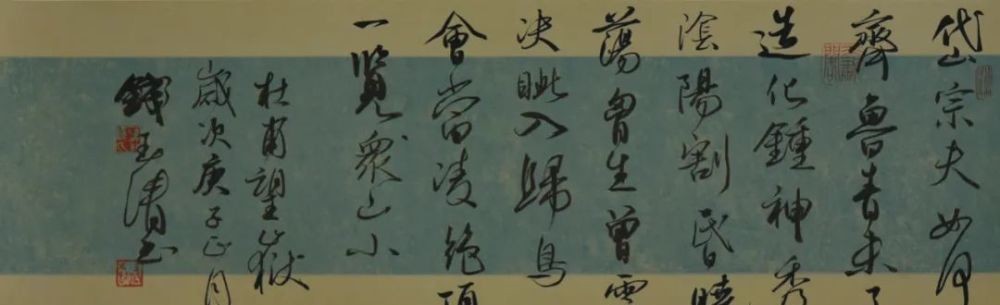 岱宗夫如何
齊魯青未了
造化鍾神秀
陰陽割昏曉
蕩胷生曾雲
决眦入歸鳥
會當凌絶頂
一覽衆山小
杜甫望嶽
歲次庚子正月
錢玉清书